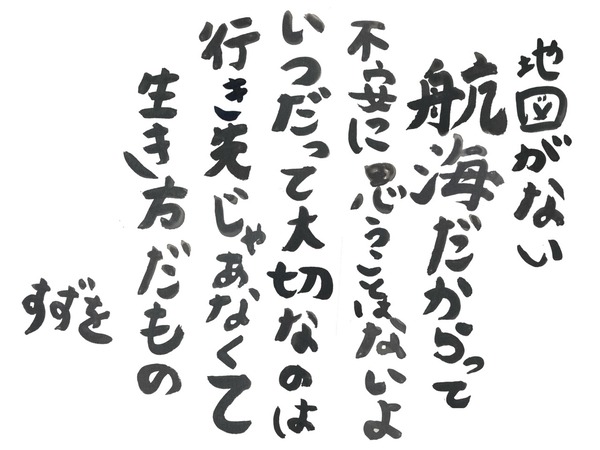 地図がない
航海だからって
不安に思うことはないよ
いつだって大切なのは
行き先じゃあなくて
生き方だもの
すずを